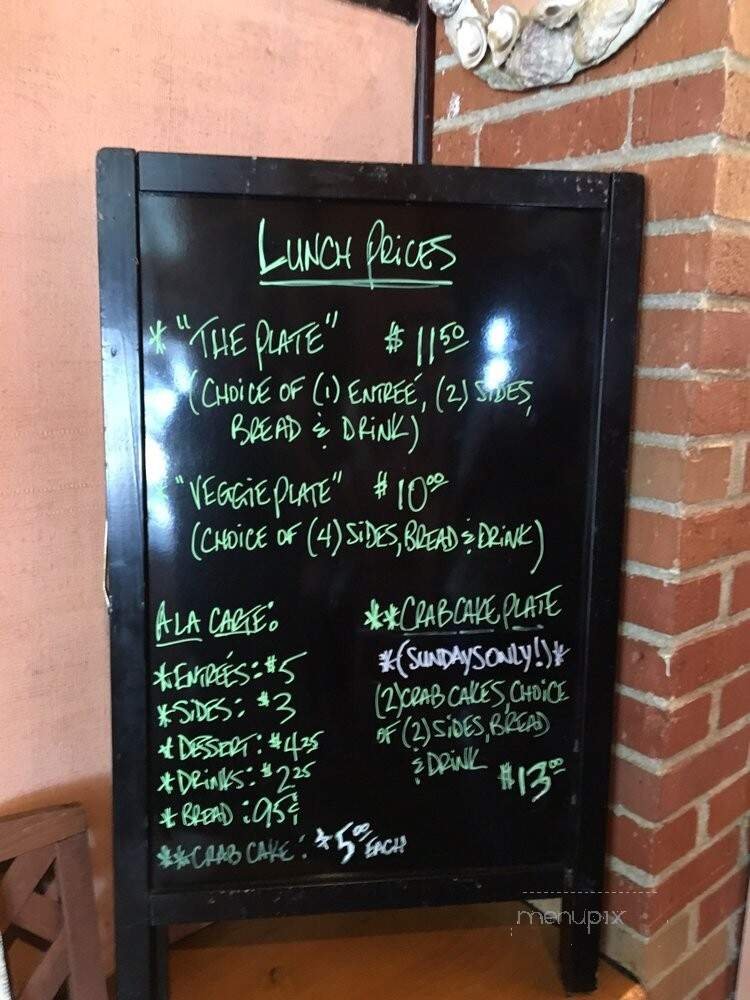 LUNCH PRICES
* "THE PLATE" $ 11.50
(CHOICE OF (1) ENTREÉ, (2) SIDES,
BREAD & DRINK)
* "VEGGIE PLATE" $ 10.00
(CHOICE OF (4) SIDES, BREAD & DRINK)
A LA CARTE:
* ENTREÉS: $5
* SIDES: $3
* DESSERT: $4.25
* DRINKS: $2.25
* BREAD: .95¢
** CRAB CAKE: $5.00 EACH
** CRAB CAKE PLATE
*(SUNDAYS ONLY!)*
(2) CRAB CAKES, CHOICE
OF (2) SIDES, BREAD
& DRINK $13.00
menupix